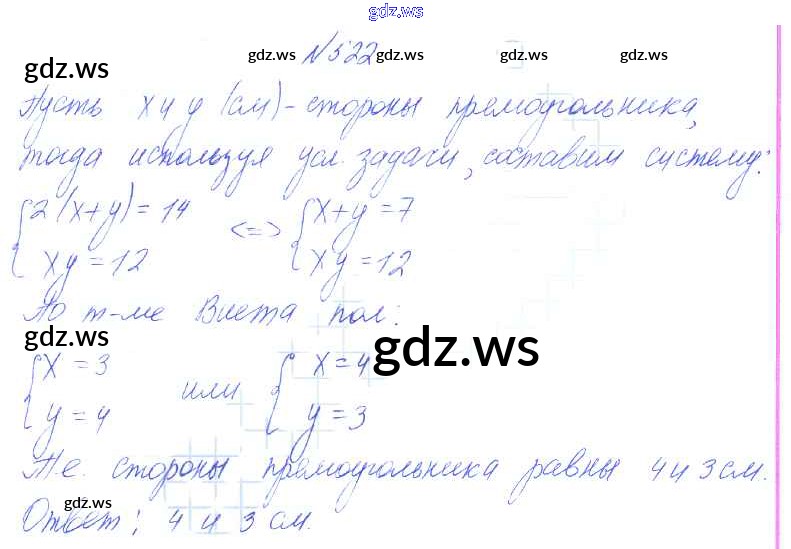 gdz.ws
gdz.ws № 522 gdz.ws
gdz.ws
Пусть x и y (см) - стороны прямоугольника,
тогда используя усл. задачи, составим систему:
2(x+y)=14 <=> x+y=7
xy=12 xy=12
По т-ме Виета пол:
gdz.ws
gdz.ws
x=3 или x=4
y=4 y=3
Т.е. стороны прямоугольника равны 4 и 3 см.
gdz.ws gdz.ws
Ответ: 4 и 3 см.